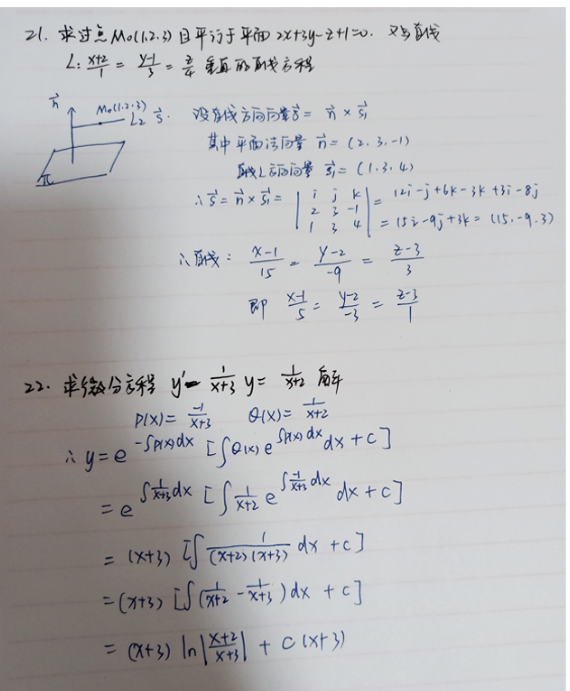 21. 求过点 M₀(1.2.3) 且平行于平面 2x+3y-z+1=0. 又与直线
L: (x+2)/1 = (y-1)/3 = z/4 垂直的直线方程
n⃗ M₀(1.2.3) L₂ s⃗. π
设直线方向向量 s⃗ = n⃗ × s⃗₁
其中平面法向量 n⃗ = (2. 3. -1)
直线L方向向量 s⃗₁ = (1. 3. 4)
∴ s⃗ = n⃗ × s⃗₁ = | i j k ; 2 3 -1 ; 1 3 4 | = 12i-j+6k-3k+3i-8j
= 15i-9j+3k = (15. -9. 3)
∴ 直线: (x-1)/15 = (y-2)/-9 = (z-3)/3
即 (x-1)/5 = (y-2)/-3 = (z-3)/1
22. 求微分方程 y' - 1/(x+3) y = 1/(x+2) 通解
P(x) = -1/(x+3) Q(x) = 1/(x+2)
∴ y = e^(-∫P(x)dx) [∫Q(x) e^(∫P(x)dx) dx + C]
= e^(∫1/(x+3) dx) [∫ 1/(x+2) e^(∫-1/(x+3) dx) dx + C]
= (x+3) [∫ 1/((x+2)(x+3)) dx + C]
= (x+3) [∫ (1/(x+2) - 1/(x+3)) dx + C]
= (x+3) ln|(x+2)/(x+3)| + C(x+3)